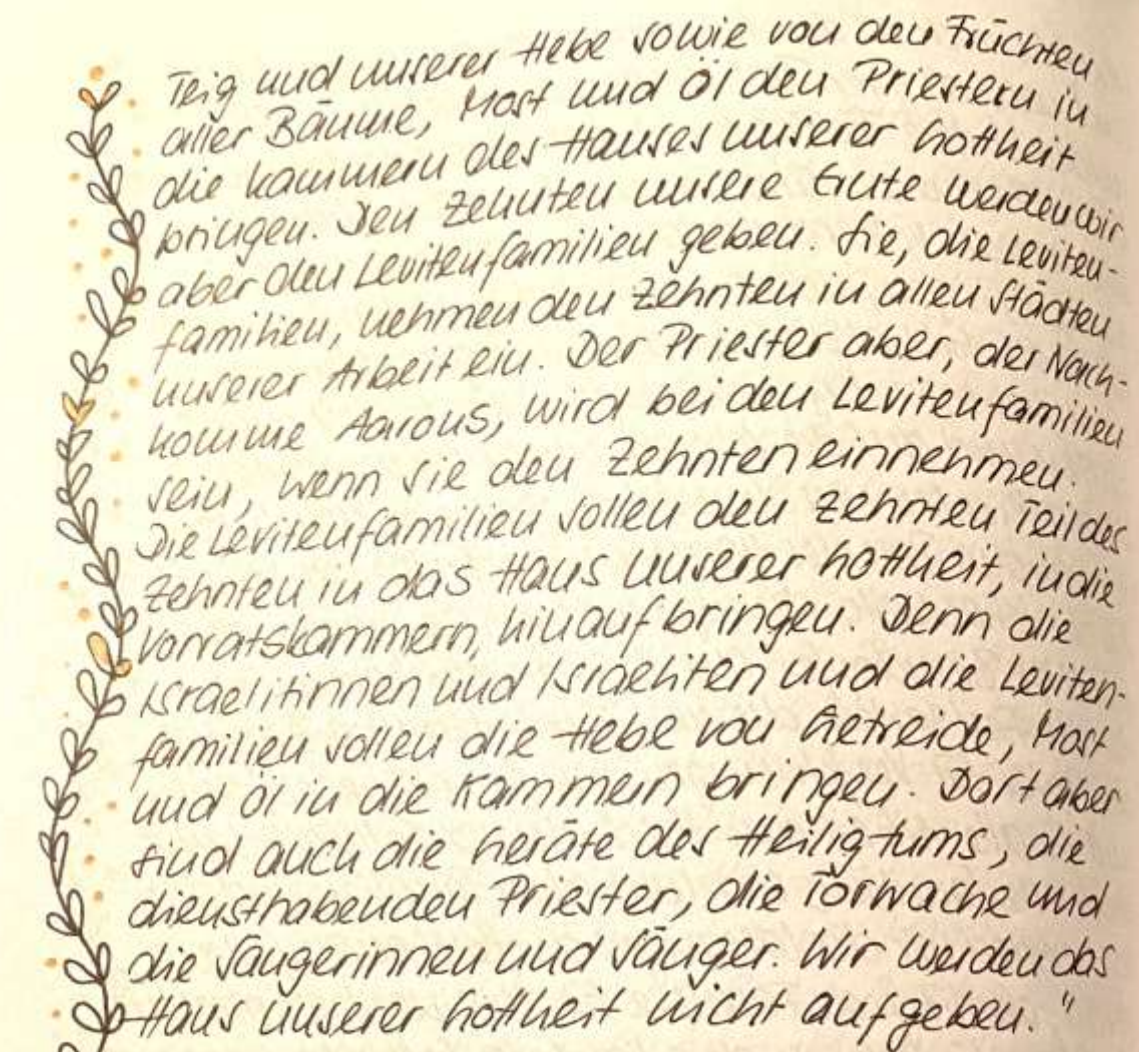 Teig und unserer Hebe sowie von den Früchten
aller Bäume, Most und Öl den Priestern in
die Kammern des Hauses unserer Gottheit
bringen. Den Zehnten unsere Ernte werden wir
aber den Levitenfamilien geben. Sie, die Leviten-
familien, nehmen den Zehnten in allen Städten
unserer Arbeit ein. Der Priester aber, der Nach-
komme Aarons, wird bei den Levitenfamilien
sein, wenn sie den Zehnten einnehmen.
Die Levitenfamilien sollen den zehnten Teil des
Zehnten in das Haus unserer Gottheit, in die
Vorratskammern, hinaufbringen. Denn die
Israelitinnen und Israeliten und die Leviten-
familien sollen die Hebe von Getreide, Most
und Öl in die Kammern bringen. Dort aber
sind auch die Geräte des Heiligtums, die
diensthabenden Priester, die Torwache und
die Sängerinnen und Sänger. Wir werden das
Haus unserer Gottheit nicht aufgeben."